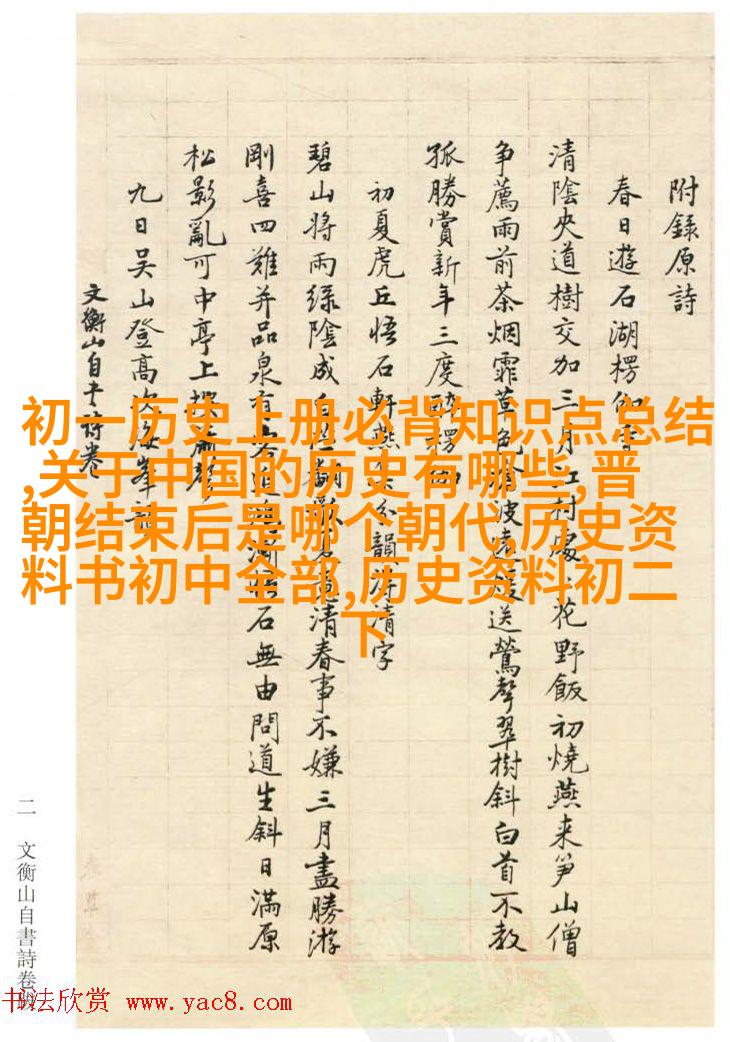 附錄原詩
春日遊石湖楞
清陰夾道樹交加三月江村處花野飯初燒燕来笋山僧
争薦雨前茶烟霏草色波遠送鶯聲翠樹斜白首不教
孤勝賞新年三度醉楞
初夏虎丘悟石軒燕分韻得清字
碧山將雨綠陰成清春事不嫌三月盡勝游
剛喜四難并品泉有石無由問道生斜日滿原
松影亂可中亭上
九日吴山登高次峯
文衡山自書詩卷
初一历史上册必背知识点总结
,关于中国的历史有哪些,晋
朝结束后是哪个朝代,历史资
料书初中全部,历史资料初二
下
二 文衡山自書詩卷
书法欣赏 www.yac8.com